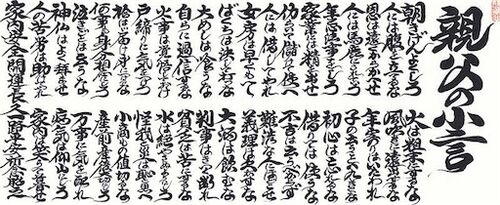 親父の小言
朝きげんよくしろ
人には腹を立てるな
恩は遠くからかくせ
人には馬鹿にされていろ
年忌法事はしろ
家業は精を出せ
働いて儲けて使へ
女房は早くもて
人には貸してやれ
ばくちは決してうつな
大めしは食うな
自らに過信するな
火事は覚悟しておけ
戸締りに気をつけろ
拾はば身につけるな
何事も身分相応にしろ
泣きごとは云うな
神仏はよく拝ませ
人の苦労は助けてやれ
火は粗末にするな
風吹きに遠出するな
年寄りはいたわれ
子の云うこと八九きくな
初心は忘れるな
借りては使うな
不吉は云うべからず
難渋な人にほどこせ
義理は必ず欠くな
大酒は飲むな
判事はきつく断れ
貧乏は苦にするな
水は絶やさぬようにしろ
怪我と災は恥と思へ
小商もの値切るな
産前産後大切にしろ
万事に気を配れ
病気は仰山にしろ
家内は笑ふて暮せ
家内安全開運長久商売